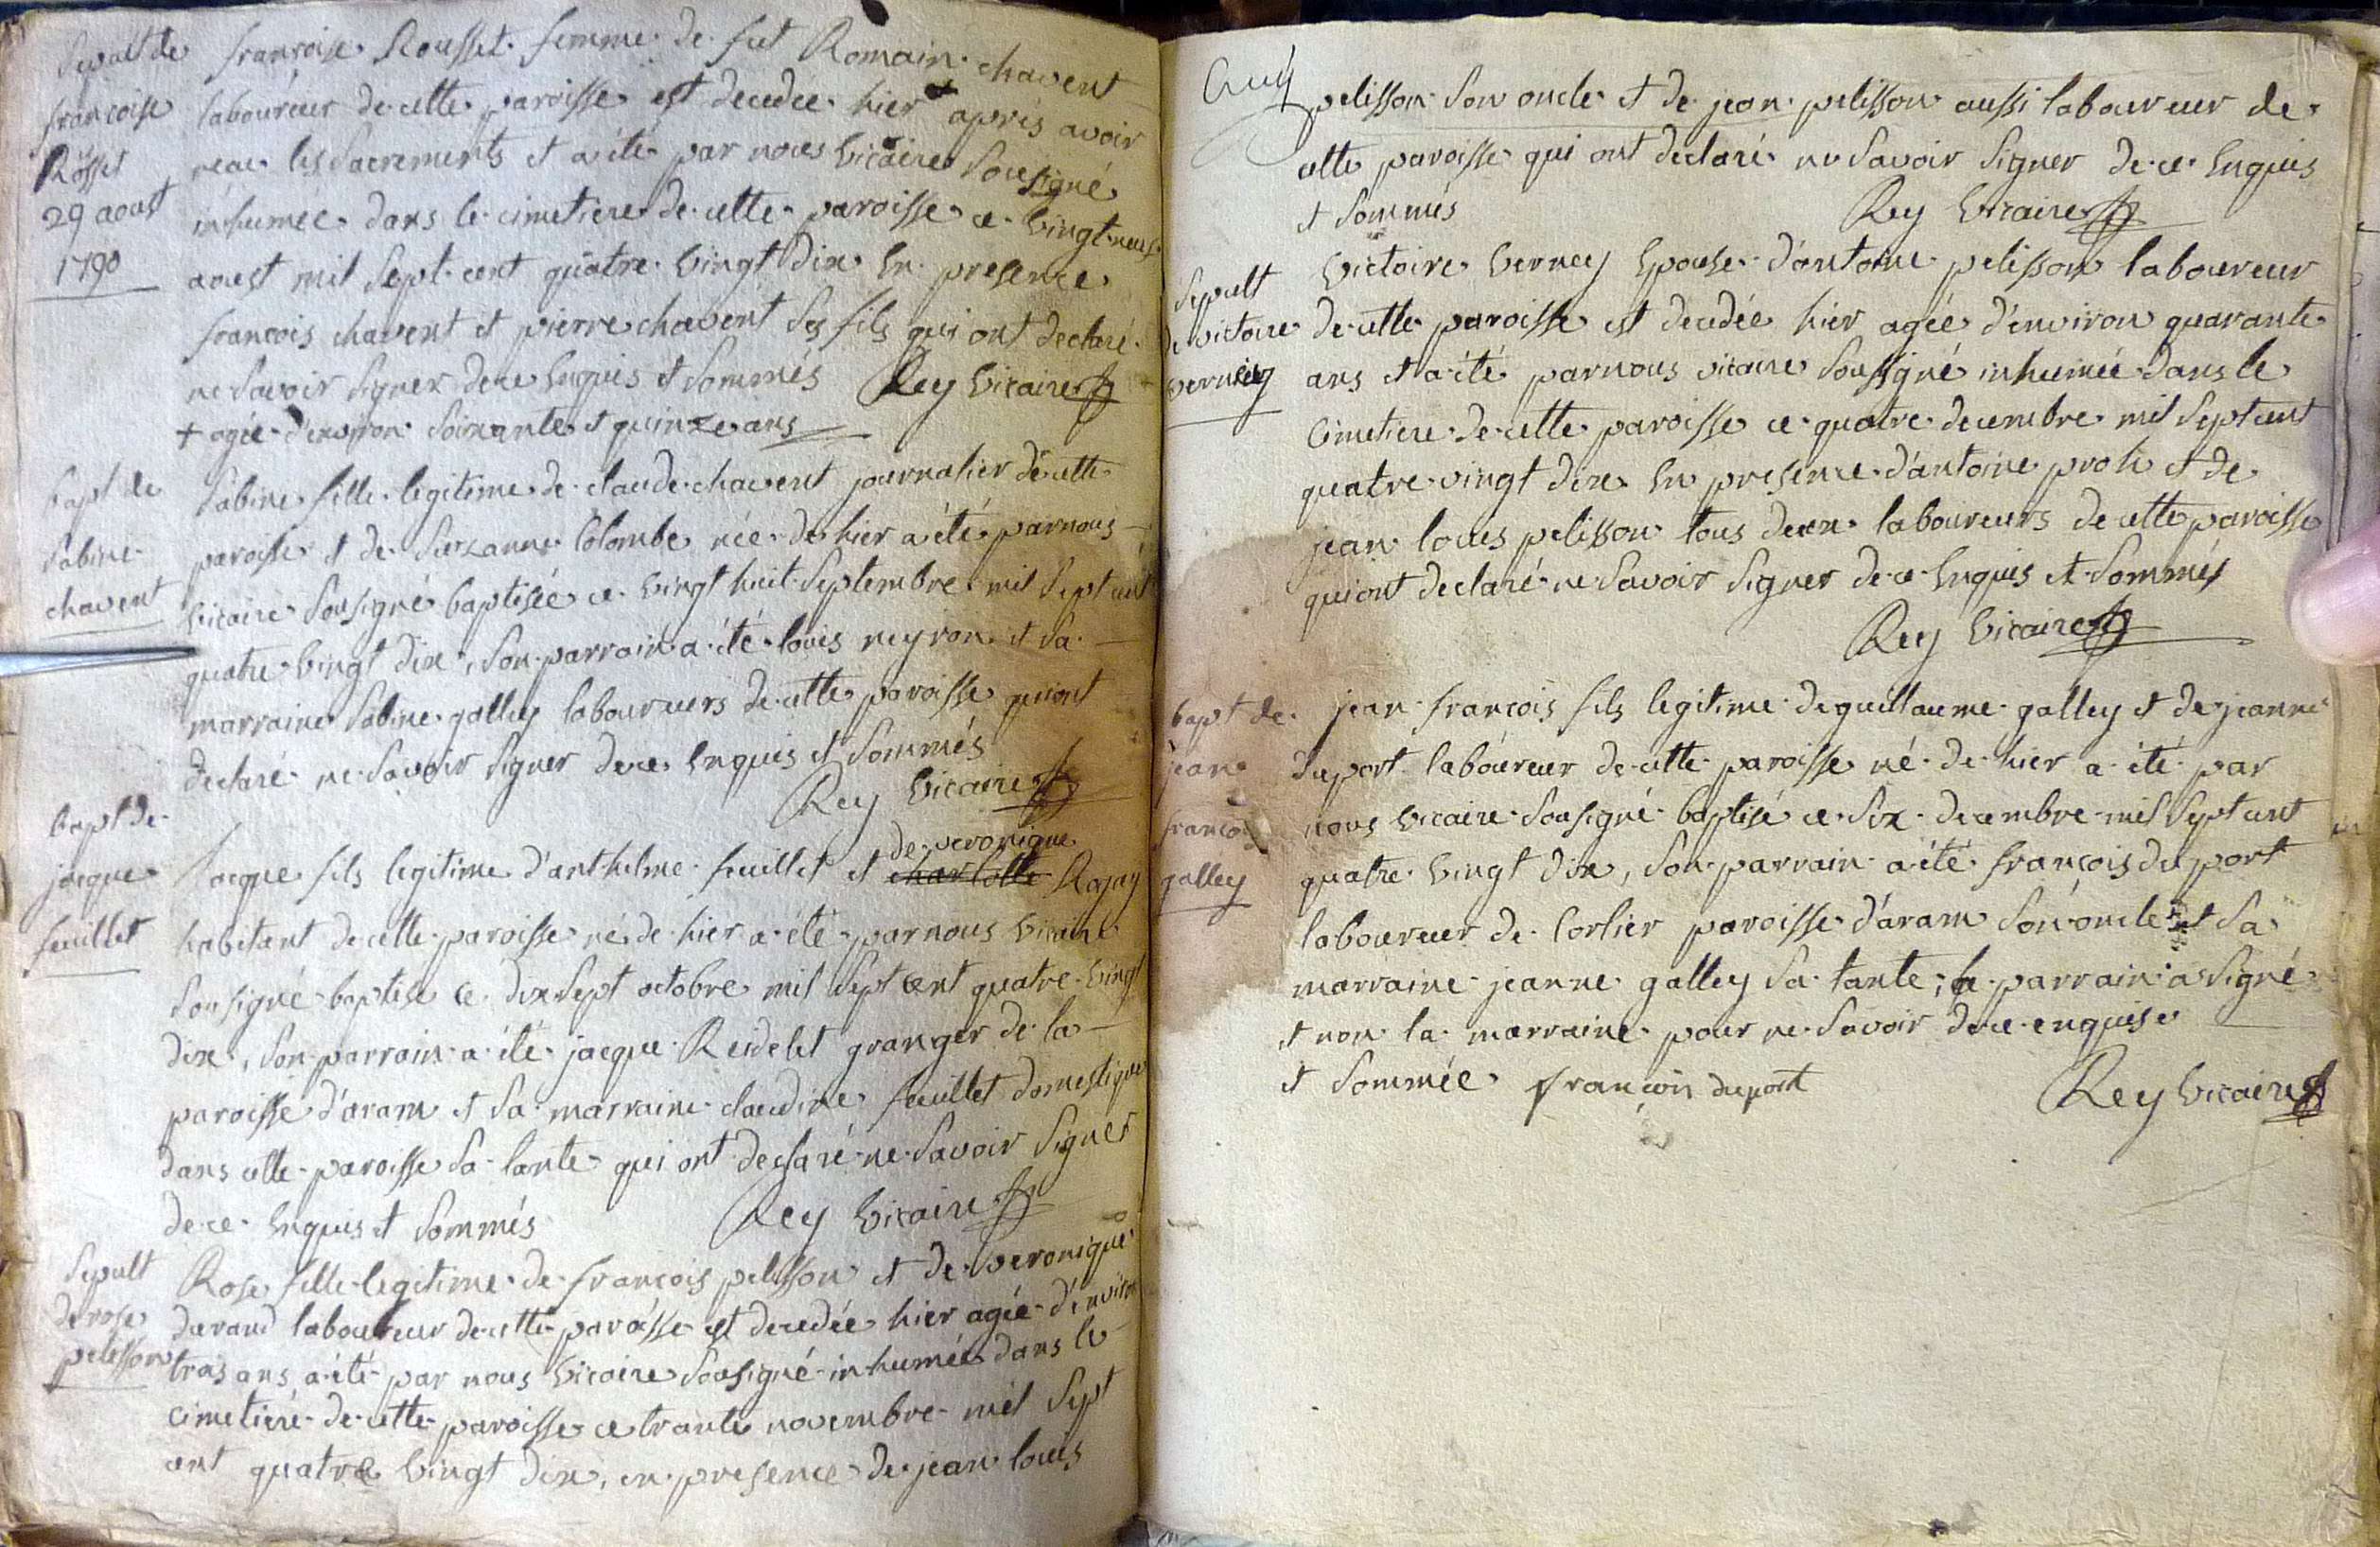 Sepult de
francoise
Rosset
29 aoust
1790
francoise Rousset femme de fut Romain chavent
laboureur de cette paroisse est decedée hier + aprés avoir
recu les Sacrements et a été par nous Vicaire Sousigné
inhumée dans le cimetiere de cette paroisse ce Vingt neuf
aoust mil Sept cent quatre Vingt Dix En presence
francois chavent et pierre chavent Ses fils qui ont declaré
ne Savoir Signer de ce Enquis et Sommés Rey Vicaire
+ agée d'environ Soixante et quinze ans
bapt de
Sabine
chavent
Sabine fille legitime de claude chavent journalier de cette
paroisse et de Suzanne Colombe née de hier a été par nous
Vicaire Sousigné baptisée ce Vingt huit Septembre mil Sept cent
quatre Vingt Dix, Son parrain a été louis neyron et Sa
marraine Sabine galley laboureurs de cette paroisse qui ont
declaré ne Savoir Signer de ce Enquis et Sommés
Rey Vicaire
bapt de
jacque
feuillet
de veronique
jacque fils legitime d'anthelme feuillet et charlotte Ragay
habitant de cette paroisse né de hier a été par nous Vicaire
Sousigné baptisé ce Dix Sept octobre mil Sept cent quatre Vingt
Dix, Son parrain a été jacque Reidelet granger de la
paroisse d'aram et Sa marraine claudine feuillet domestique
dans cette paroisse Sa tante qui ont declaré ne Savoir Signer
de ce Enquis et Sommés Rey Vicaire
Sepult
de rose
pelisson
Rose fille legitime de francois pelisson et de veronique
durand laboureur de cette paroisse est decedée hier agée d'environ
trois ans a été par nous Vicaire Sousigné inhumée dans le
cimetiere de cette paroisse ce trante novembre mil Sept
cent quatre Vingt Dix, en presence de jean louis
pelisson Son oncle et de jean pelisson aussi laboureur de
cette paroisse qui ont declaré ne Savoir Signer de ce Enquis
et Sommés Rey Vicaire
Sepult
de victoire
verney
Victoire Verney Epouse d'antoine pelisson laboureur
de cette paroisse est decedée hier agée d'environ quarante
ans et a été par nous vicaire Sousigné inhumée dans le
Cimetiere de cette paroisse ce quatre decembre mil Sept cent
quatre vingt dix En presence d'antoine prost et de
jean louis pelisson tous deux laboureurs de cette paroisse
qui ont declaré ne Savoir Signer de ce Enquis et Sommés
Rey Vicaire
bapt de
jean
francois
galley
jean francois fils legitime de guillaume galley et de jeanne
Duport laboureur de cette paroisse né de hier a été par
nous Vicaire Sousigné baptisé ce Six decembre mil Sept cent
quatre Vingt Dix, Son parrain a été francois duport
laboureur de Corlier paroisse d'aram Son oncle et Sa
marraine jeanne galley Sa tante, le parrain a Signé
et non la marraine pour ne Savoir de ce enquise
et Sommée francois duport Rey Vicaire